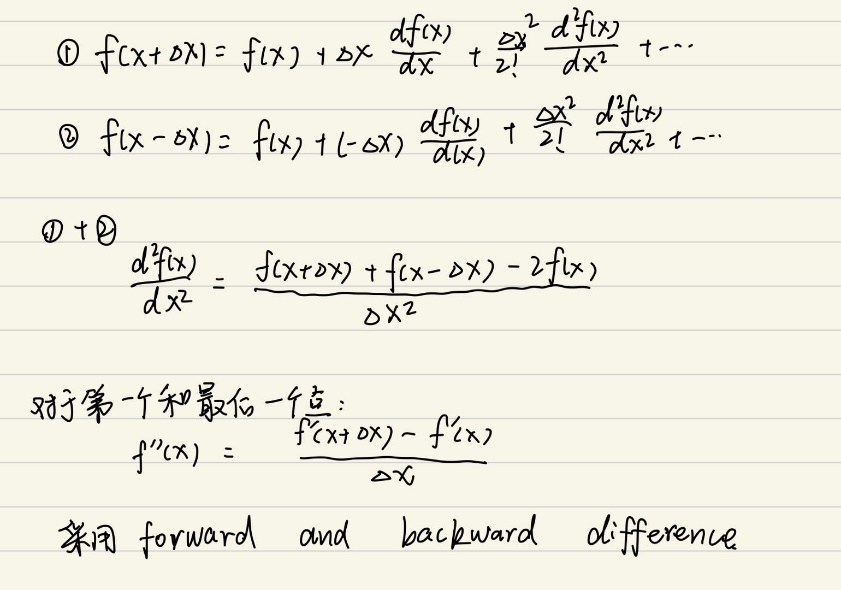 ① f(x+Δx) = f(x) + Δx df(x)/dx + Δx²/2! d²f(x)/dx² + ...
② f(x-Δx) = f(x) + (-Δx) df(x)/d(x) + Δx²/2! d²f(x)/dx² + ...
① + ②
d²f(x)/dx² = (f(x+Δx) + f(x-Δx) - 2f(x))/Δx²
对于第一个和最后一个点:
f''(x) = (f'(x+Δx) - f'(x))/Δx
采用 forward and backward difference